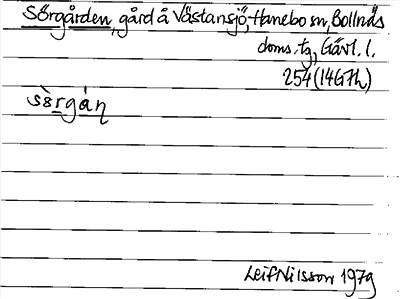 Sörgården, gård å Västansjö, Hanebo sn, Bollnäs
doms.tg, Gävl. l.
254 (14G7h)
sò̈rgán
Leif Nilsson 1979